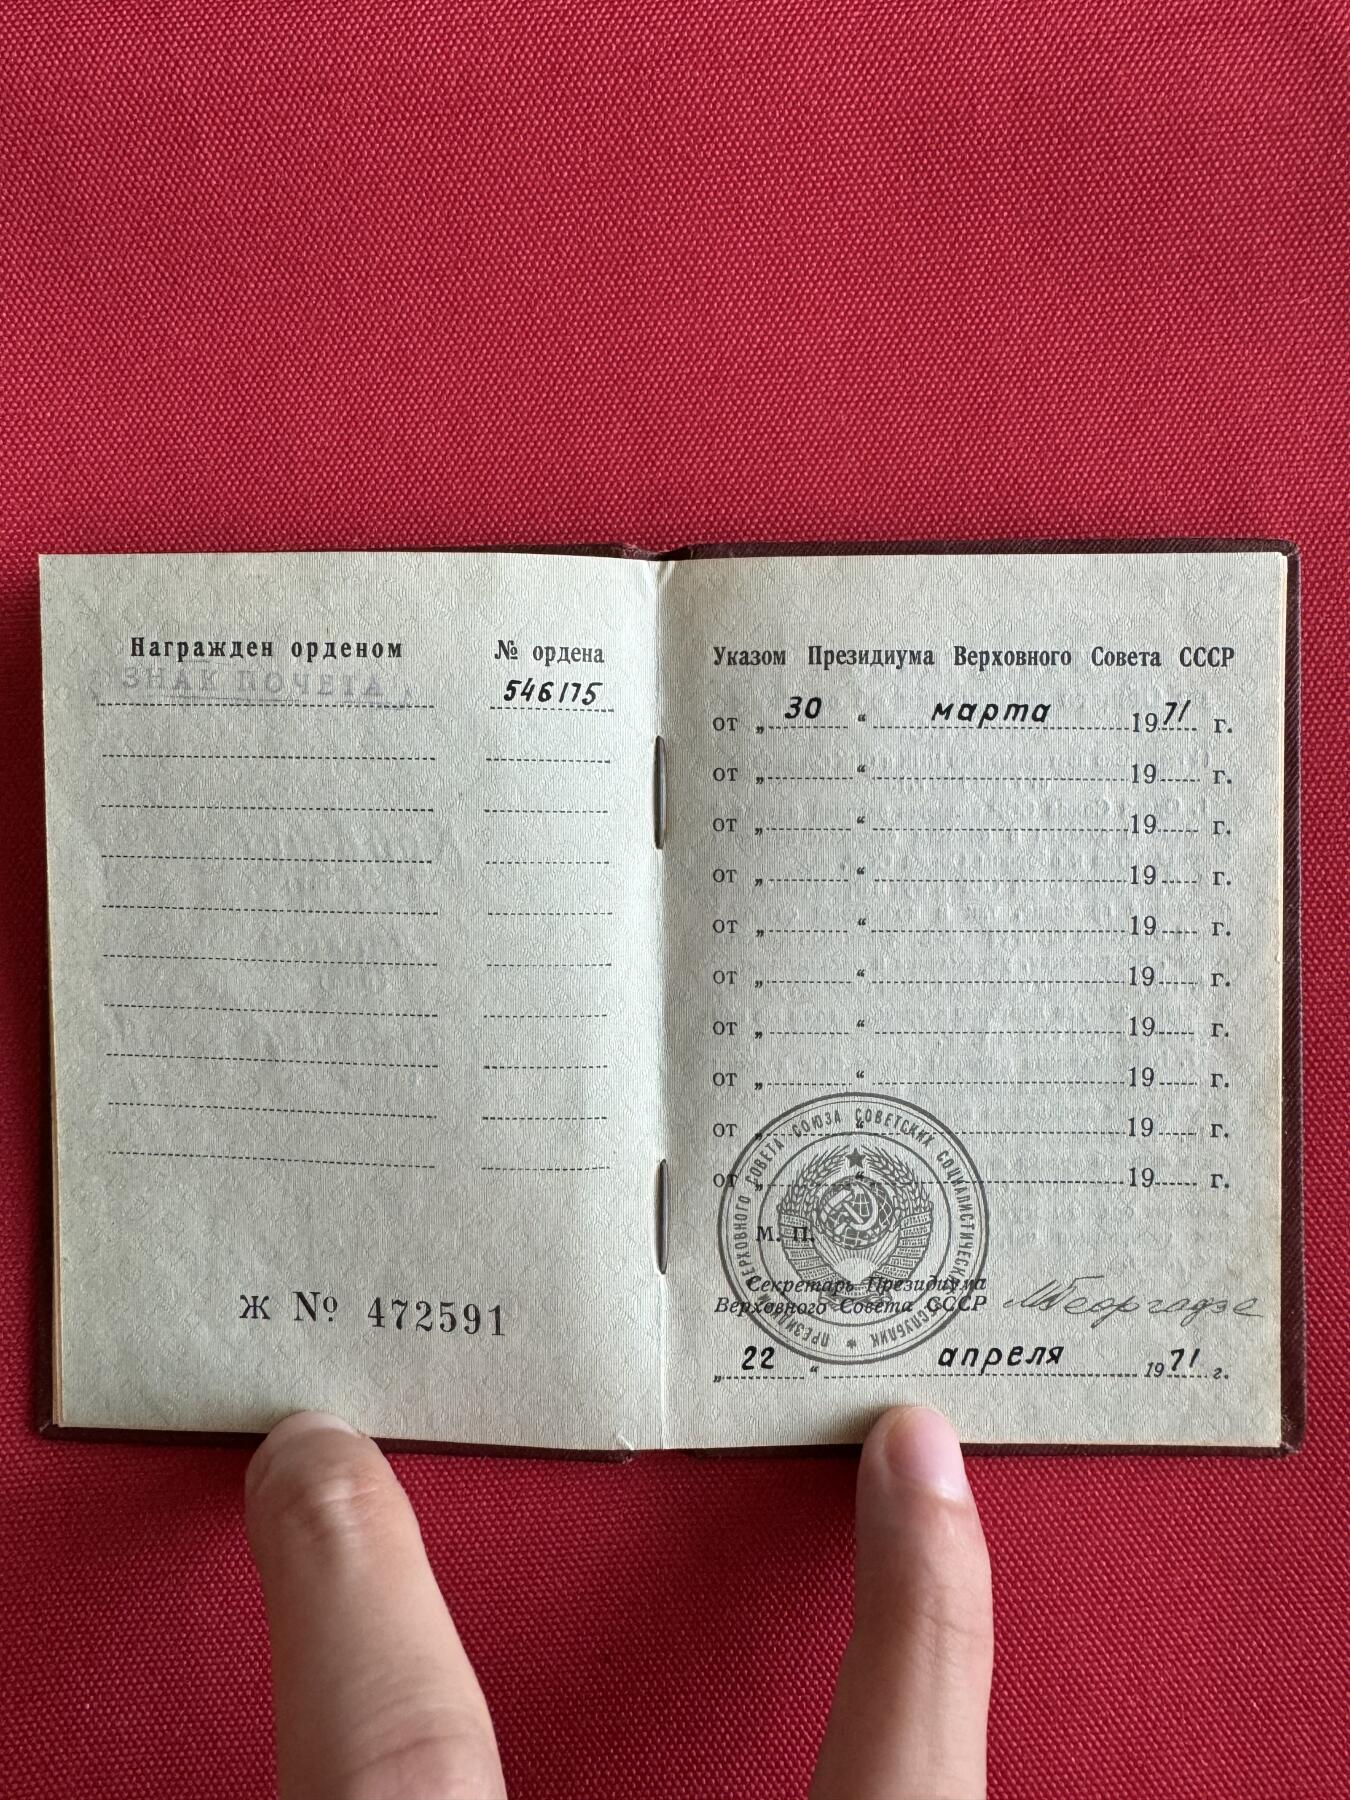 Награжден орденом
ЗНАК ПОЧЕТА
№ ордена
546175
Указом Президиума Верховного Совета СССР
от „ 30 “ марта 1971 г.
от „ “ 19 г.
от „ “ 19 г.
от „ “ 19 г.
от „ “ 19 г.
от „ “ 19 г.
от „ “ 19 г.
от „ “ 19 г.
от „ “ 19 г.
от „ “ 19 г.
М. П.
ПРЕЗИДИУМ ВЕРХОВНОГО СОВЕТА СОЮЗА СОВЕТСКИХ СОЦИАЛИСТИЧЕСКИХ РЕСПУБЛИК
Секретарь Президиума
Верховного Совета СССР МГеоргадзе
„ 22 “ апреля 1971 г.
Ж № 472591